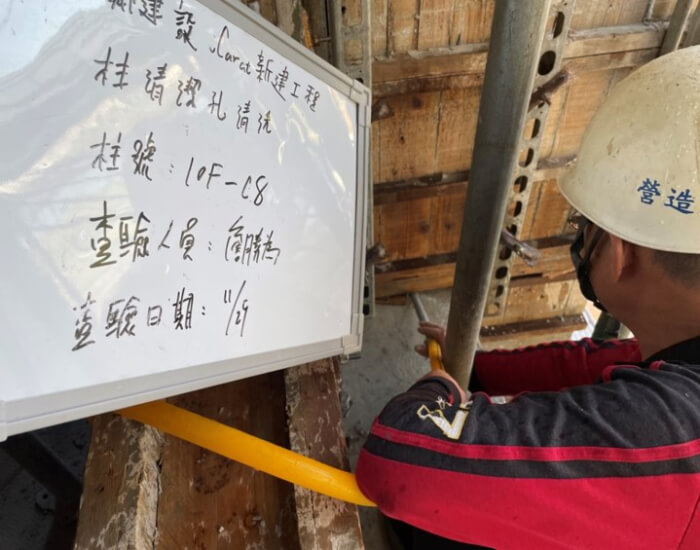 建設 Carat新建工程
柱清潔孔清洗
柱號：10F-C8
查驗人員：勝為
查驗日期：11/29
營造